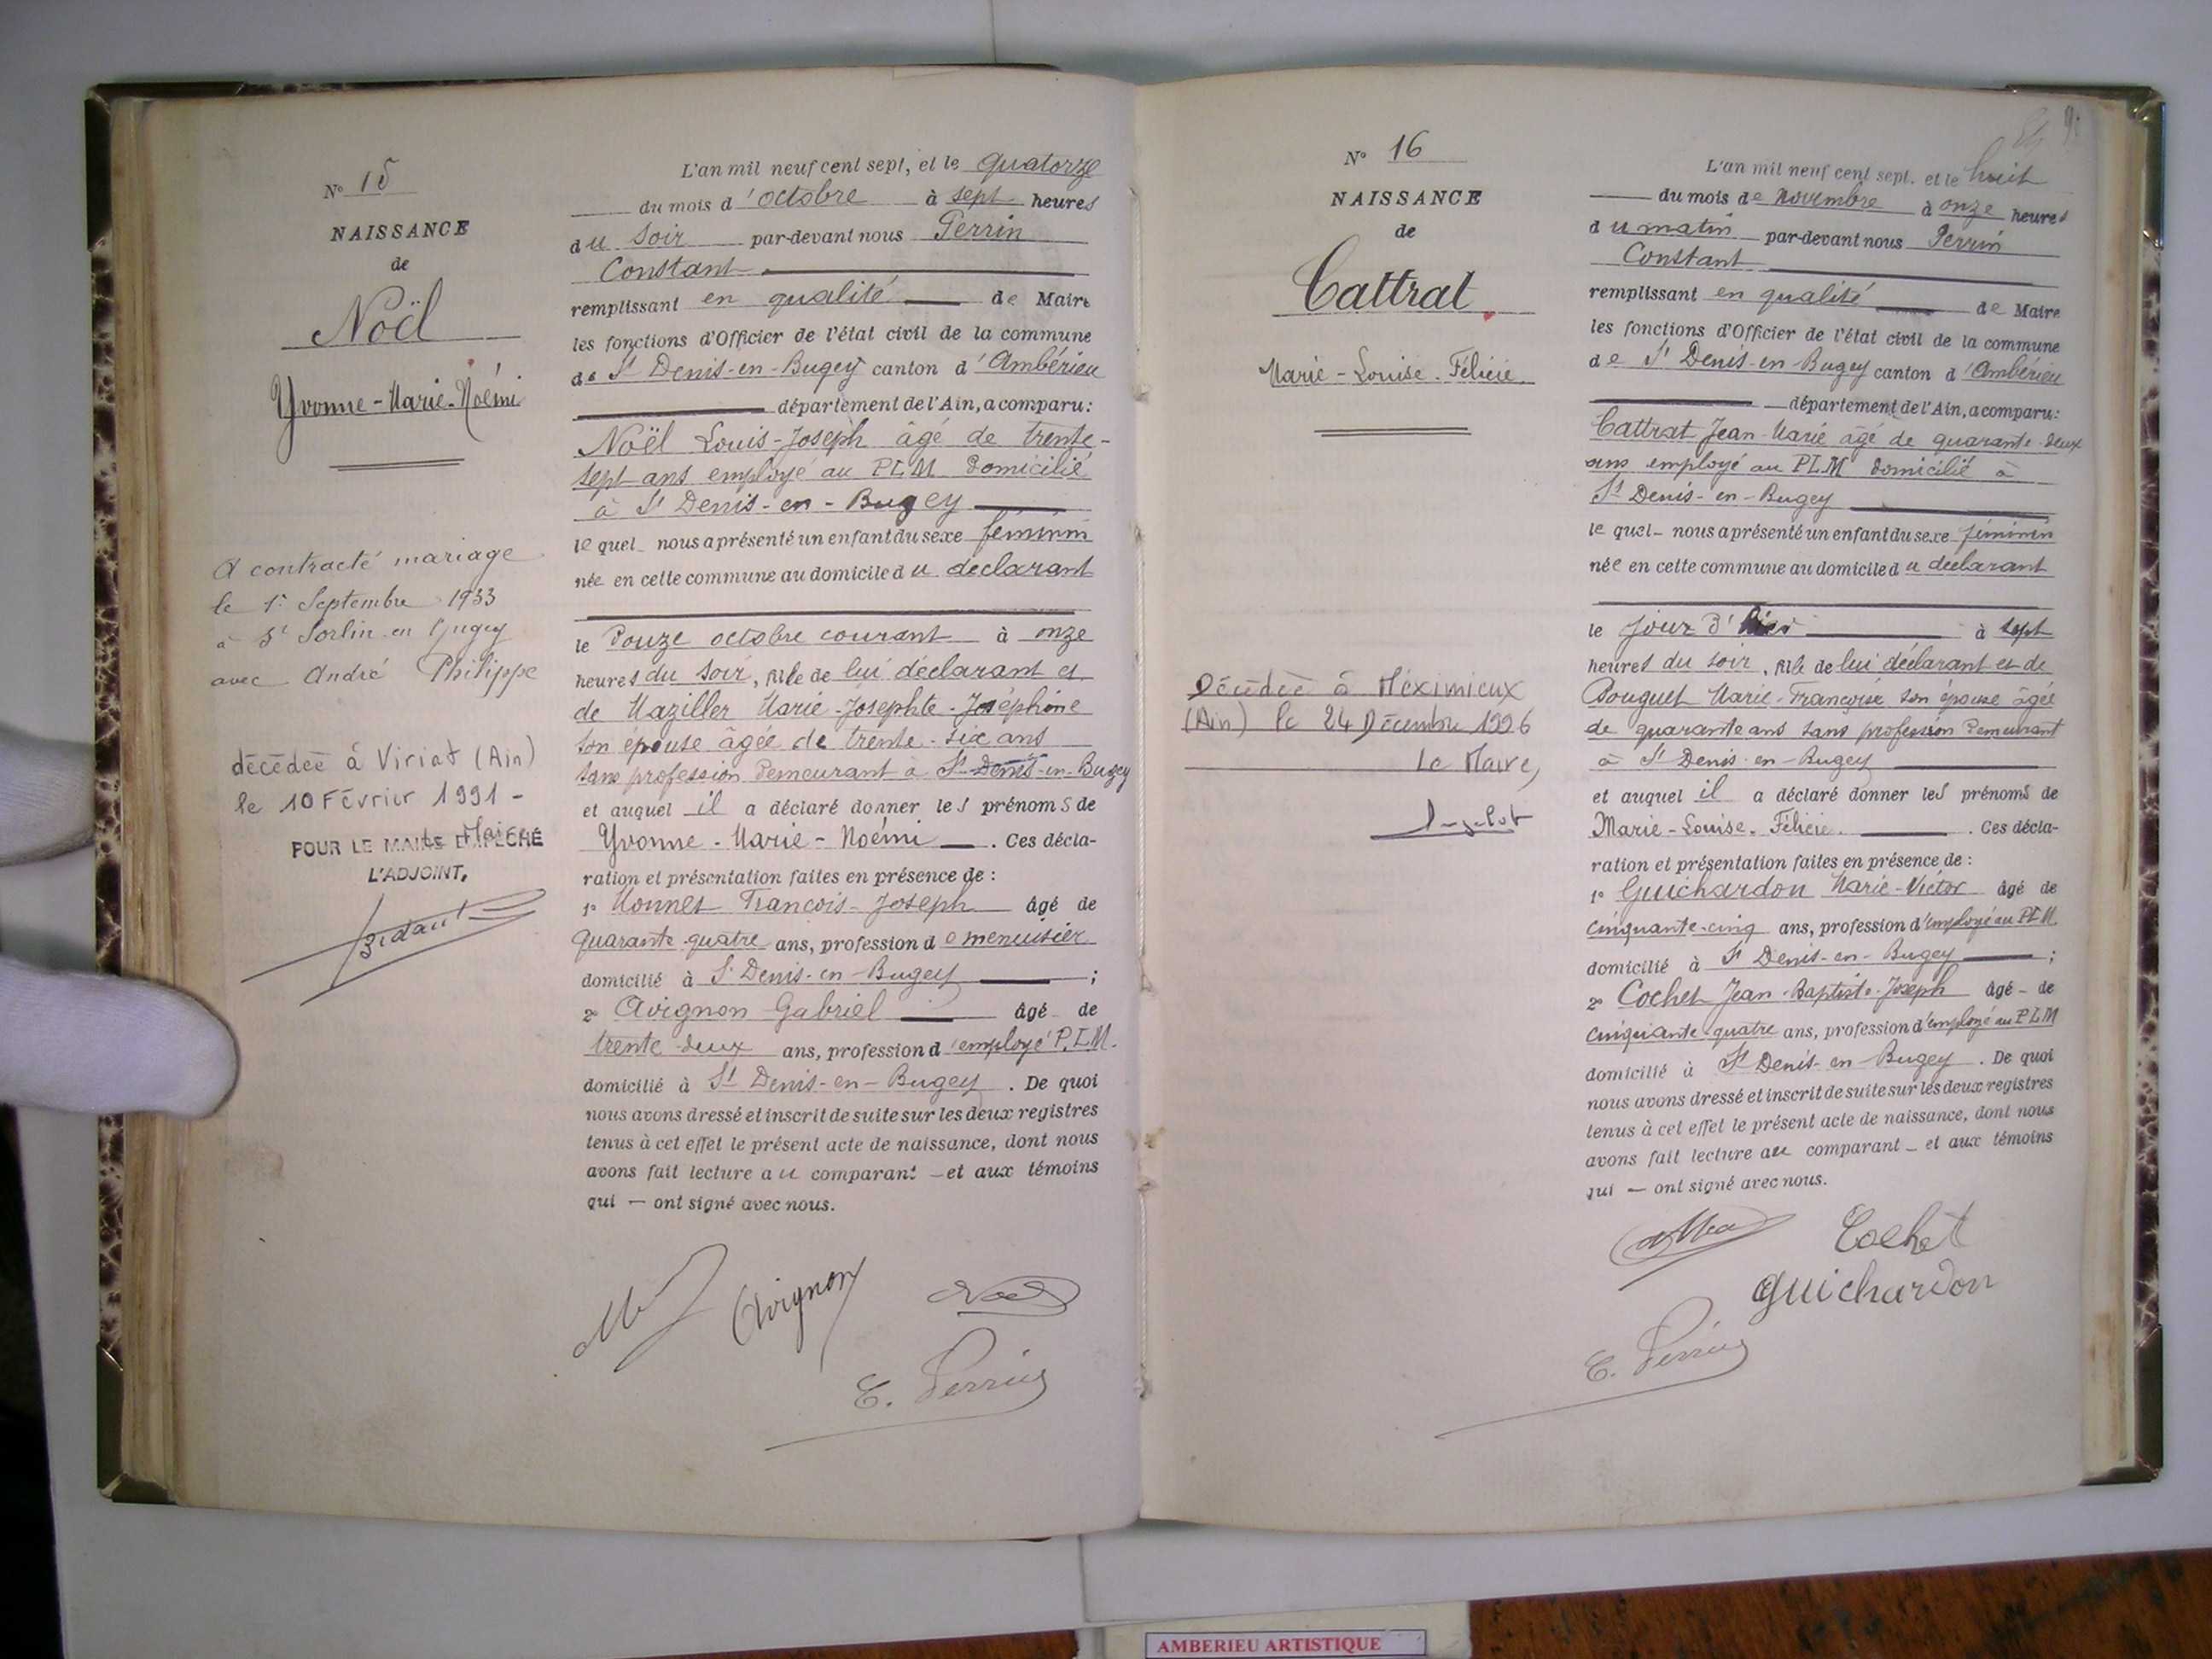 N° 15
NAISSANCE
de
Noël
Yvonne-Marie-Noémi
A contracté mariage
le 1er Septembre 1933
à St Sorlin en Bugey
avec André Philippe
décédée à Viriat (Ain)
le 10 Février 1991 -
Le Maire
POUR LE MAIRE EMPECHÉ
L'ADJOINT,
L'an mil neuf cent sept, et le quatorze
du mois d'octobre à sept heures
du soir par-devant nous Perrin
Constant
remplissant en qualité de Maire
les fonctions d'Officier de l'état civil de la commune
de St Denis-en-Bugey canton d'Ambérieu
département de l'Ain, a comparu:
Noël Louis-Joseph âgé de trente-
sept ans employé au PLM domicilié
à St Denis-en-Bugey
lequel nous a présenté un enfant du sexe féminin
née en cette commune au domicile du déclarant
le douze octobre courant à onze
heures du soir, fille de lui déclarant et
de Maziller Marie-Josephte-Joséphine
son épouse âgée de trente-six ans
sans profession demeurant à St-Denis-en-Bugey
et auquel il a déclaré donner les prénoms de
Yvonne-Marie-Noémi. Ces décla-
ration et présentation faites en présence de :
1° Monnet François-Joseph âgé de
quarante-quatre ans, profession de menuisier
domicilié à St Denis-en-Bugey ;
2° Avignon Gabriel âgé de
trente-deux ans, profession d'employé P.L.M.
domicilié à St Denis-en-Bugey. De quoi
nous avons dressé et inscrit de suite sur les deux registres
tenus à cet effet le présent acte de naissance, dont nous
avons fait lecture au comparant - et aux témoins
qui — ont signé avec nous.
Avignon Noël
C. Perrin
N° 16
NAISSANCE
de
Cattrat
Marie-Louise-Félicie
Décédée à Méximieux
(Ain) le 24 Décembre 1996
Le Maire,
L'an mil neuf cent sept, et le huit
du mois de Novembre à onze heures
du matin par-devant nous Perrin
Constant
remplissant en qualité de Maire
les fonctions d'Officier de l'état civil de la commune
de St Denis-en-Bugey canton d'Ambérieu
département de l'Ain, a comparu:
Cattrat Jean-Marie âgé de quarante-deux
ans employé au PLM domicilié à
St Denis-en-Bugey
lequel nous a présenté un enfant du sexe féminin
née en cette commune au domicile du déclarant
le jour d'hier à sept
heures du soir, fille de lui déclarant et de
Bouquet Marie-Françoise son épouse âgée
de quarante ans sans profession demeurant
à St Denis-en-Bugey
et auquel il a déclaré donner les prénoms de
Marie-Louise-Félicie. Ces décla-
ration et présentation faites en présence de :
1° Guichardon Marie-Victor âgé de
cinquante-cinq ans, profession d'employé au PLM
domicilié à St Denis-en-Bugey ;
2° Cochet Jean-Baptiste-Joseph âgé de
cinquante-quatre ans, profession d'employé au PLM
domicilié à St Denis-en-Bugey. De quoi
nous avons dressé et inscrit de suite sur les deux registres
tenus à cet effet le présent acte de naissance, dont nous
avons fait lecture au comparant - et aux témoins
qui — ont signé avec nous.
Cochet
Guichardon
C. Perrin
AMBERIEU ARTISTIQUE